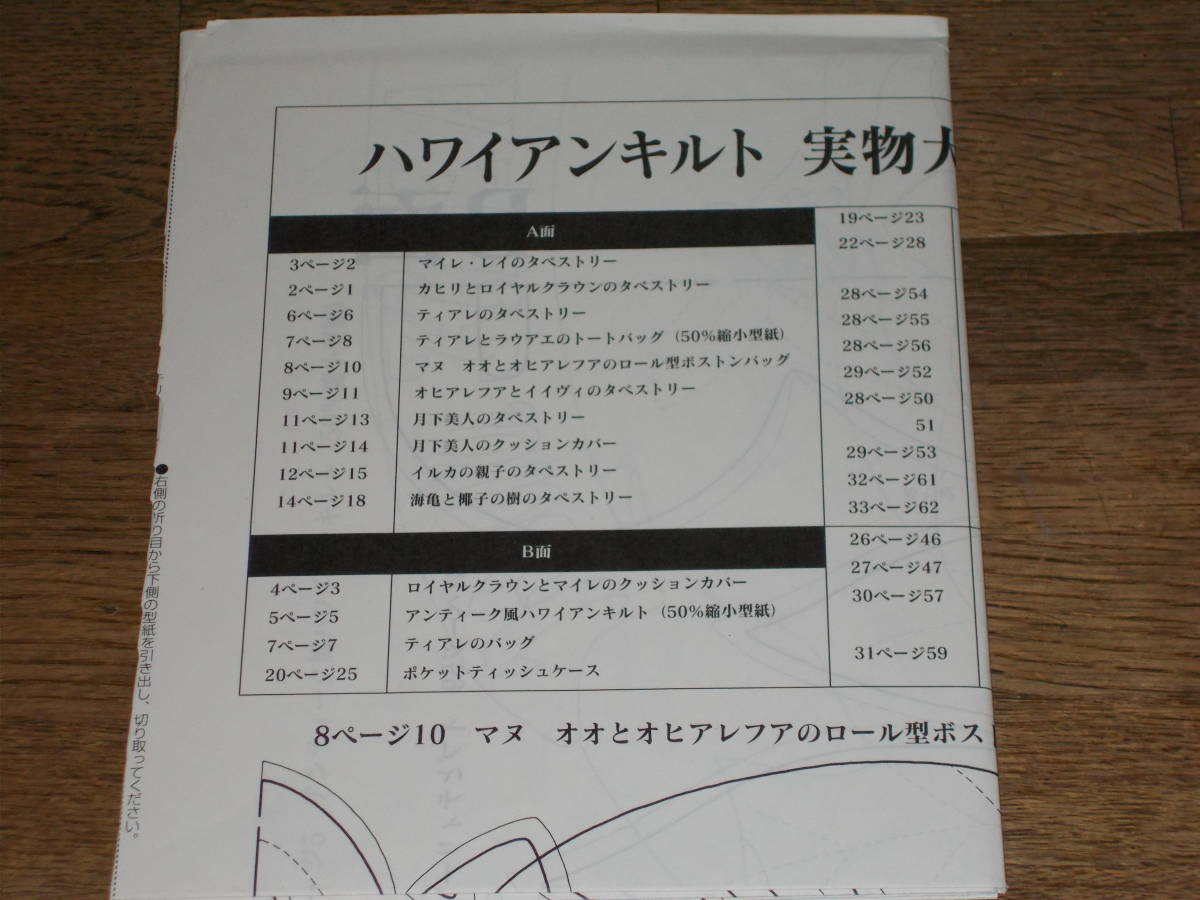 ハワイアンキルト 実物大
A面
3ページ2 マイレ・レイのタペストリー
2ページ1 カヒリとロイヤルクラウンのタペストリー
6ページ6 ティアレのタペストリー
7ページ8 ティアレとラウアエのトートバッグ（50%縮小型紙）
8ページ10 マヌ　オオとオヒアレフアのロール型ボストンバッグ
9ページ11 オヒアレフアとイイヴィのタペストリー
11ページ13 月下美人のタペストリー
11ページ14 月下美人のクッションカバー
12ページ15 イルカの親子のタペストリー
14ページ18 海亀と椰子の樹のタペストリー
B面
4ページ3 ロイヤルクラウンとマイレのクッションカバー
5ページ5 アンティーク風ハワイアンキルト（50%縮小型紙）
7ページ7 ティアレのバッグ
20ページ25 ポケットティッシュケース
19ページ23
22ページ28
28ページ54
28ページ55
28ページ56
29ページ52
28ページ50
51
29ページ53
32ページ61
33ページ62
26ページ46
27ページ47
30ページ57
31ページ59
8ページ10　マヌ　オオとオヒアレフアのロール型ボス
●右側の折り目から下側の型紙を引き出し、切り取ってください。